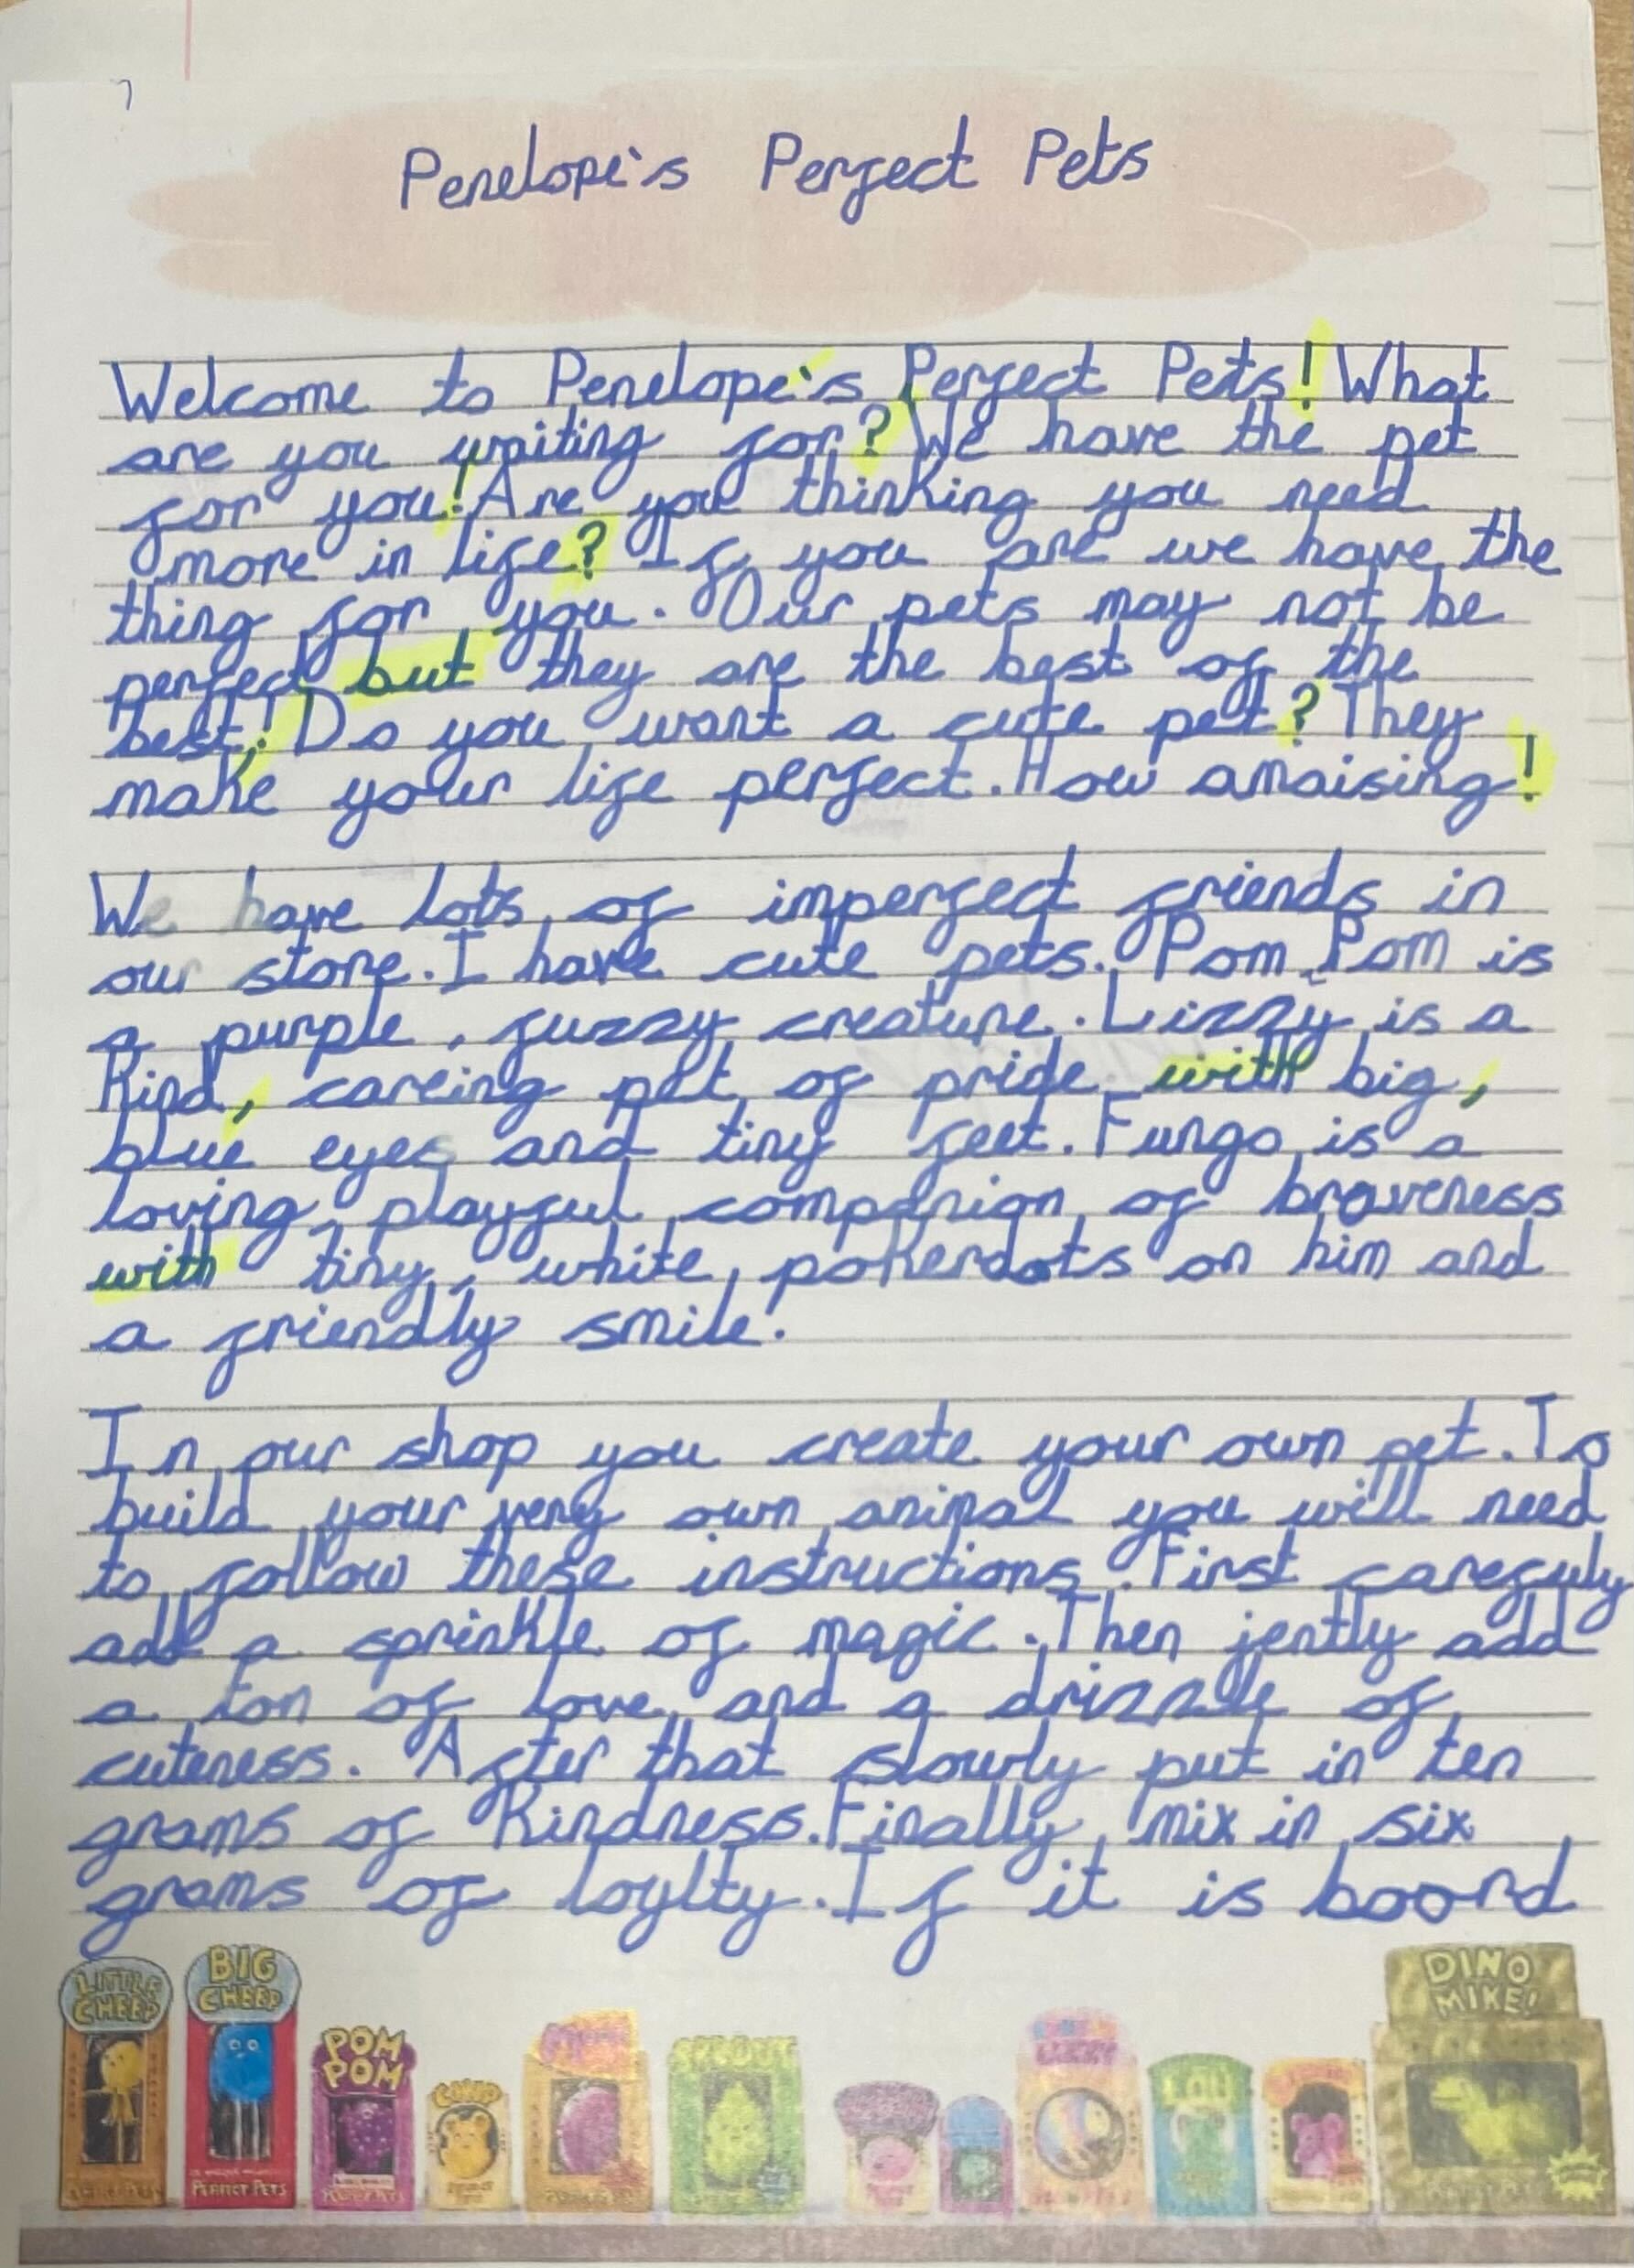 Penelope's Perfect Pets
Welcome to Penelope's Perfect Pets! What
are you waiting for? We have the pet
for you! Are you thinking you need
more in life? If you are we have the
thing for you. Our pets may not be
perfect but they are the best of the
best! Do you want a cute pet? They
make your life perfect. How amaising!
We have lots of imperfect friends in
our store. I have cute pets. Pom Pom is
a purple, fuzzy creature. Lizzy is a
kind, careing pet of pride with big,
blue eyes and tiny feet. Fungo is a
loving, playful companion of braveness
with tiny, white, pokerdots on him and
a friendly smile.
In our shop you create your own pet. To
build your very own animal you will need
to follow these instructions. First carefuly
add a sprinkle of magic. Then jently add
a ton of love and a drizzle of
cuteness. After that slowly put in ten
grams of kindness. Finally, mix in six
grams of loylty. If it is boord
LITTLE CHEEP
BIG CHEEP
PERFECT PETS
POM POM
DINO MIKE!